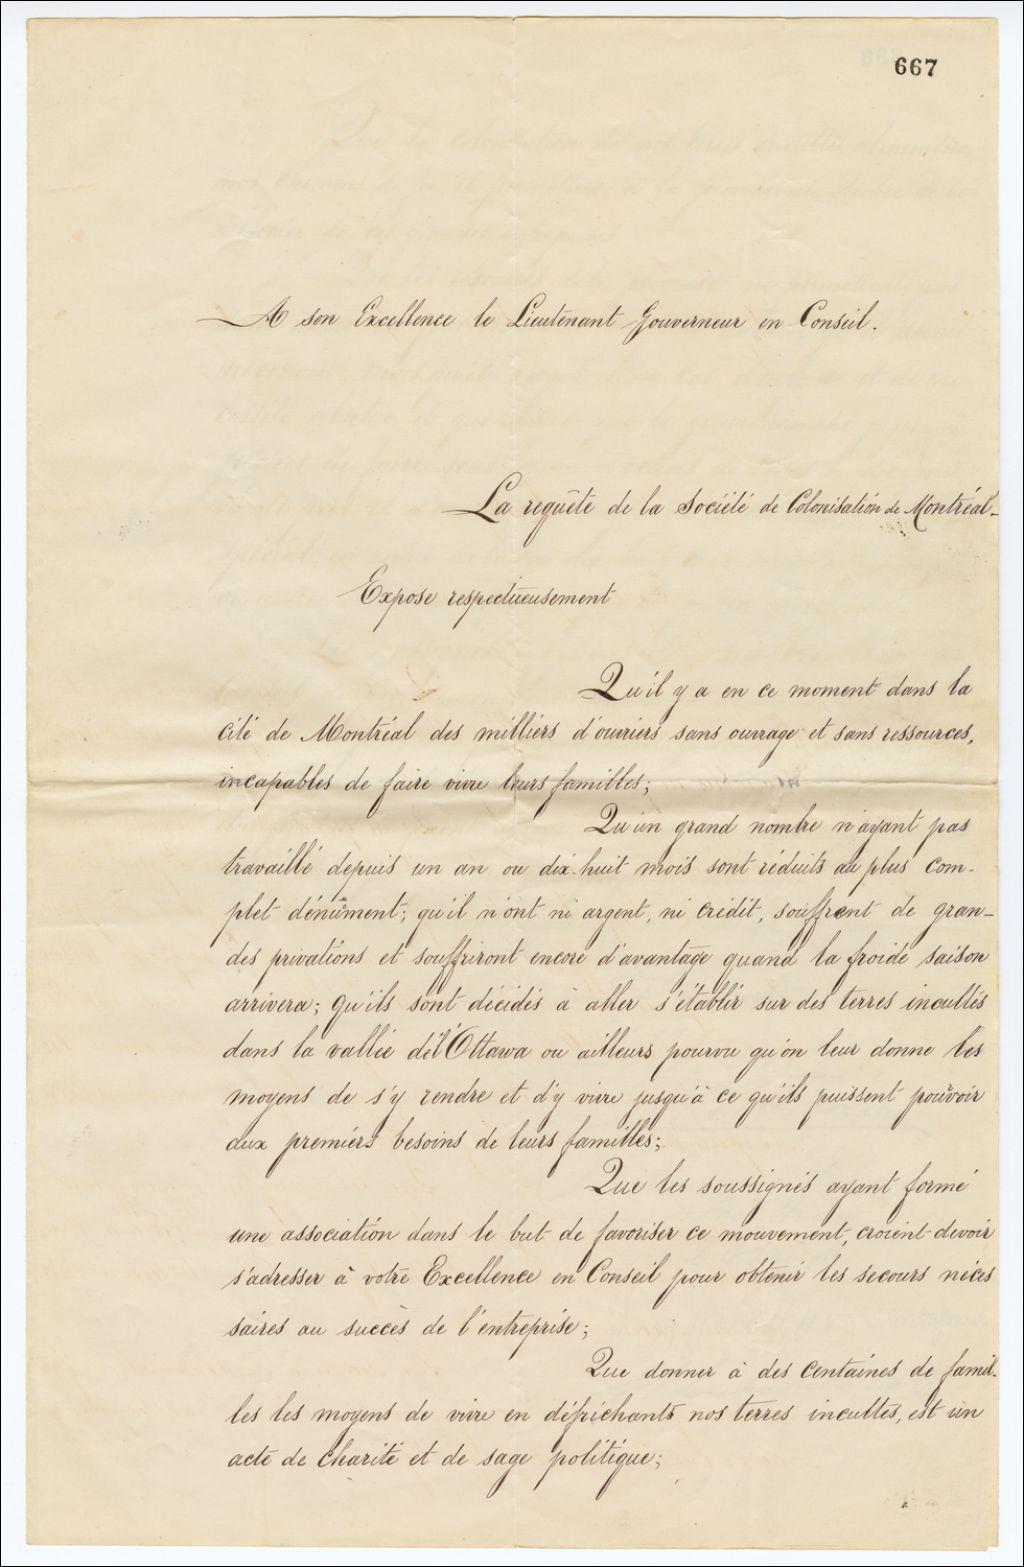 667
A son Excellence le Lieutenant Gouverneur en Conseil.
La requête de la Société de Colonisation de Montréal
Expose respectueusement
Qu'il y a en ce moment dans la
cité de Montréal des milliers d'ouvriers sans ouvrage et sans ressources,
incapables de faire vivre leurs familles;
Qu'un grand nombre n'ayant pas
travaillé depuis un an ou dix-huit mois sont réduits au plus com-
plet dénûment; qu'il n'ont ni argent, ni crédit, souffrent de gran-
des privations et souffriront encore d'avantage quand la froide saison
arrivera; qu'ils sont décidés à aller s'établir sur des terres incultes
dans la vallée de l'Ottawa ou ailleurs pourvu qu'on leur donne les
moyens de s'y rendre et d'y vivre jusqu'à ce qu'ils puissent pouvoir
aux premiers besoins de leurs familles;
Que les soussignés ayant formé
une association dans le but de favoriser ce mouvement, croient devoir
s'adresser à votre Excellence en Conseil pour obtenir les secours néces
saires au succès de l'entreprise;
Que donner à des centaines de famil-
les les moyens de vivre en défrichants nos terres incultes, est un
acte de charité et de sage politique;